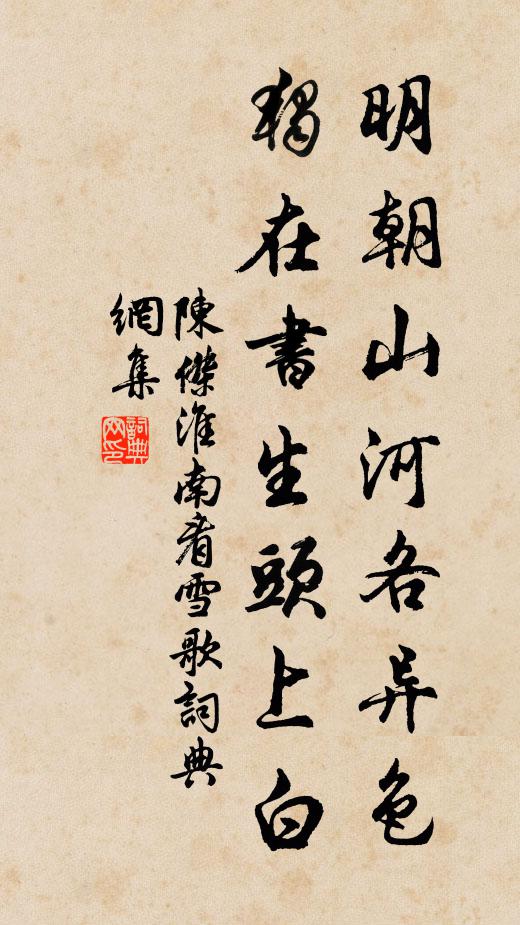 明朝山河各异色
獨在書生頭上白
陳傑淮南看雪歌詞典
網集
詞典
网印